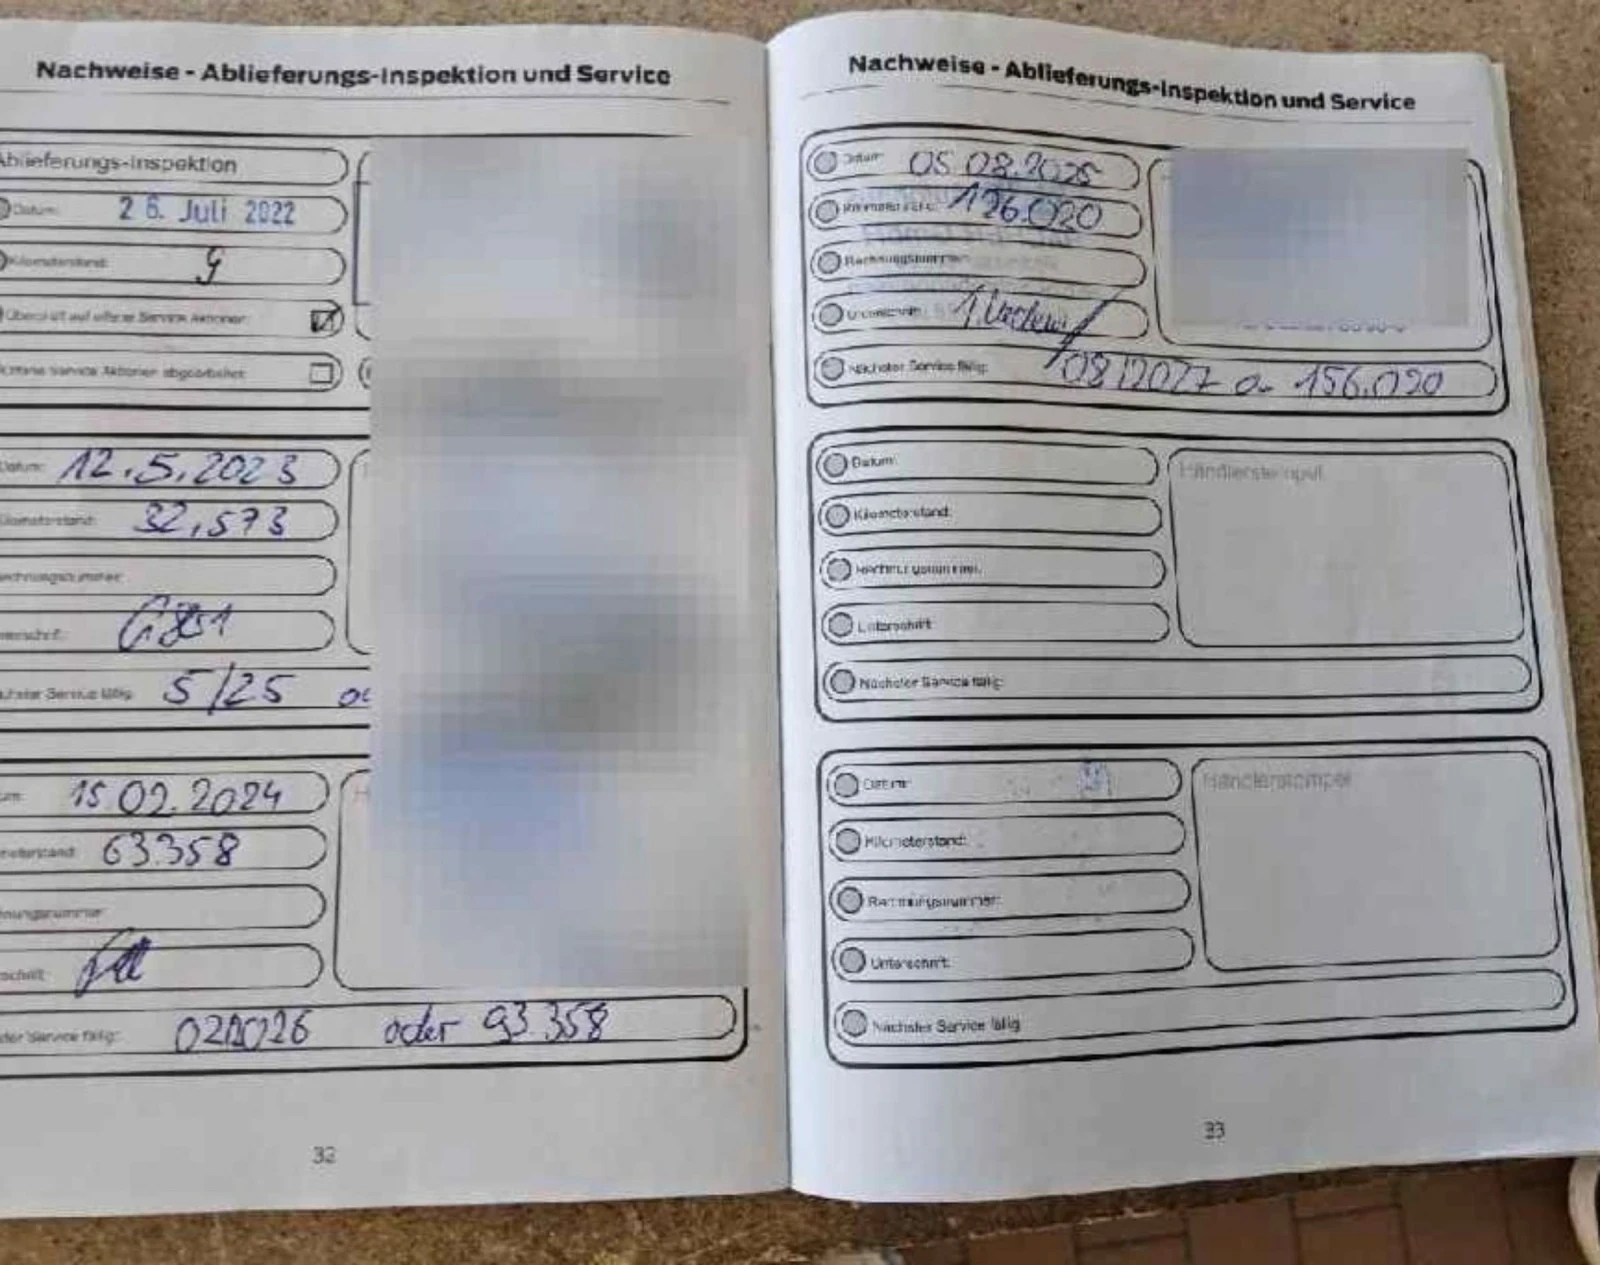 Nachweise - Ablieferungs-Inspektion und Service
Ablieferungs-Inspektion
Datum: 26. Juli 2022
Kilometerstand: 9
Überprüft auf offene Service Aktionen:
Service Aktionen abgearbeitet:
Datum: 12.5.2023
Kilometerstand: 32.573
Rechnungsnummer:
Unterschrift:
Nächster Service fällig: 5/25
15 02.2024
63358
02/2026 oder 93 358
32
Nachweise - Ablieferungs-Inspektion und Service
Datum: 05 08.2025
Kilometerstand: 126.020
Rechnungsnummer:
Unterschrift:
Nächster Service fällig: 08/2027 o. 156.020
Datum: Händlerstempel
Kilometerstand:
Rechnungsnummer:
Unterschrift:
Nächster Service fällig:
Datum: Händlerstempel
Kilometerstand:
Rechnungsnummer:
Unterschrift:
Nächster Service fällig
33